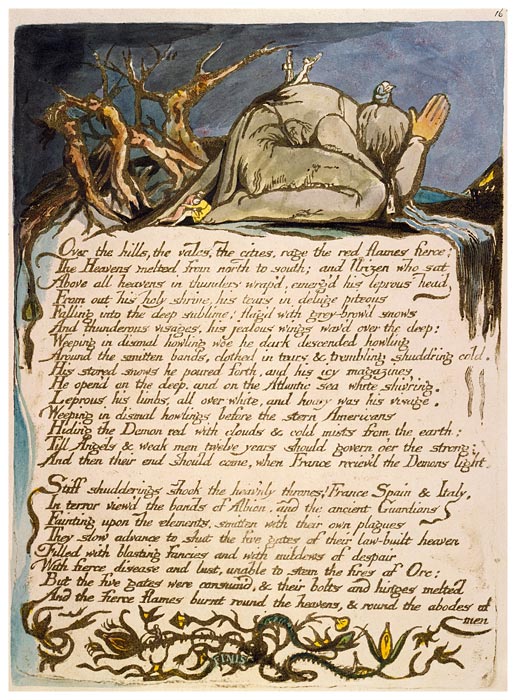 16
Over the hills, the vales, the cities, rage the red flames fierce;
The Heavens melted from north to south; and Urizen who sat
Above all heavens in thunders wrap'd, emerg'd his leprous head
From out his holy shrine, his tears in deluge piteous
Falling into the deep sublime! flag'd with grey-brow'd snows
And thunderous visages, his jealous wings wav'd over the deep;
Weeping in dismal howling woe he dark descended howling
Around the smitten bands, clothed in tears & trembling shudd'ring cold.
His stored snows he poured forth, and his icy magazines
He open'd on the deep, and on the Atlantic sea white shiv'ring.
Leprous his limbs, all over white, and hoary was his visage.
Weeping in dismal howlings before the stern Americans
Hiding the Demon red with clouds & cold mists from the earth;
Till Angels & weak men twelve years should govern o'er the strong:
And then their end should come, when France reciev'd the Demons light.
Stiff shudderings shook the heav'nly thrones! France Spain & Italy,
In terror view'd the bands of Albion, and the ancient Guardians
Fainting upon the elements, smitten with their own plagues
They slow advance to shut the five gates of their law-built heaven
Filled with blasting fancies and with mildews of despair
With fierce disease and lust, unable to stem the fires of Orc;
But the five gates were consum'd, & their bolts and hinges melted
And the fierce flames burnt round the heavens, & round the abodes of
men
FINIS